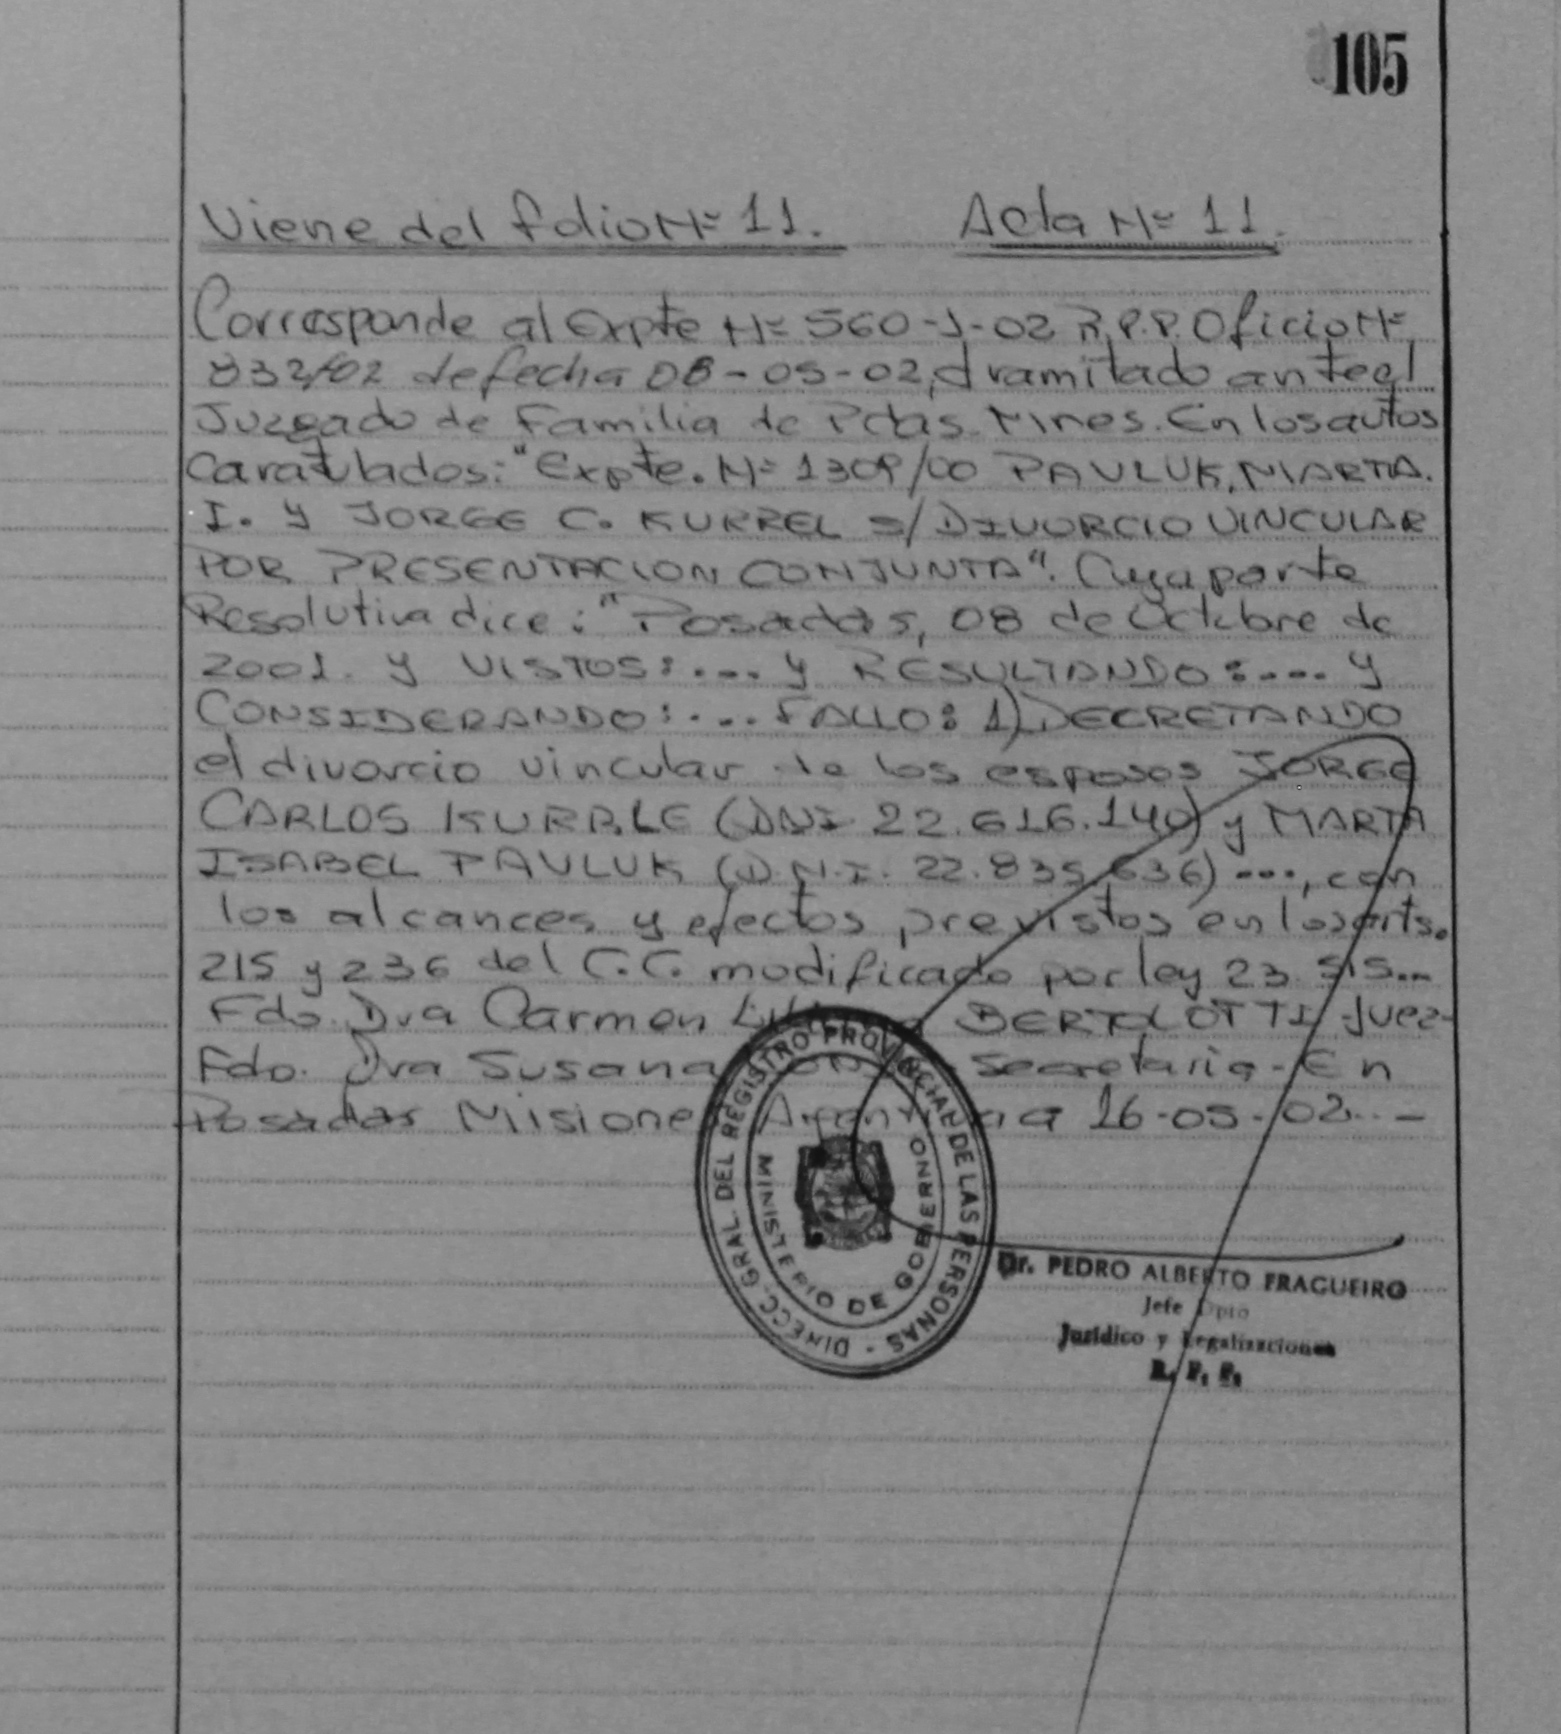 105
Viene del folio Nº 11. Acta Nº 11.
Corresponde al Expte Nº 560-J-02 R.P.P. Oficio Nº
832/02 de fecha 08-05-02, tramitado ante el
Juzgado de Familia de Pdas. Mnes. En los autos
Caratulados: "Expte. Nº 1309/00 PAULUK, MARTA.
I. y JORGE C. KURREL s/ DIVORCIO VINCULAR
POR PRESENTACION CONJUNTA". Cuya parte
Resolutiva dice: "Posadas, 08 de Octubre de
2001. y VISTOS:.... y RESULTANDO:.... y
CONSIDERANDO:.... FALLO: 1) DECRETANDO
el divorcio vincular de los esposos JORGE
CARLOS KURRLE (DNI 22.616.140) y MARTA
ISABEL PAULUK (D.N.I. 22.835.636) ...., con
los alcances y efectos previstos en los arts.
215 y 236 del C.C. modificado por ley 23.515...
Fdo. Dra Carmen BERTOLOTTI - Juez-
Fdo. Dra Susana Secretaria - En
Posadas Misiones Argentina a 16-05-02.. -
DIRECC. GRAL. DEL REGISTRO PROVINCIAL DE LAS PERSONAS -
MINISTERIO DE GOBIERNO
Dr. PEDRO ALBERTO FRAGUEIRO
Jefe Dpto
Jurídico y Legalizaciones
R. P. P.